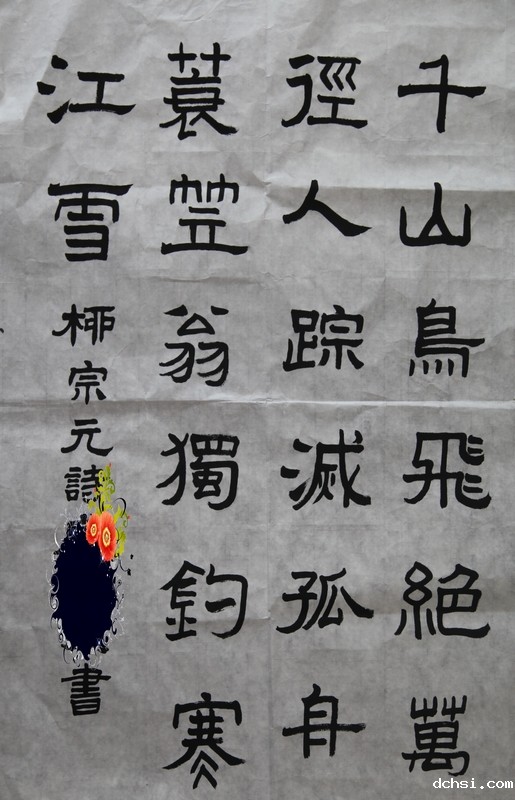 千山鳥飛絕萬
徑人踪滅孤舟
蓑笠翁獨釣寒
江雪 柳宗元詩 書
dchsi.com